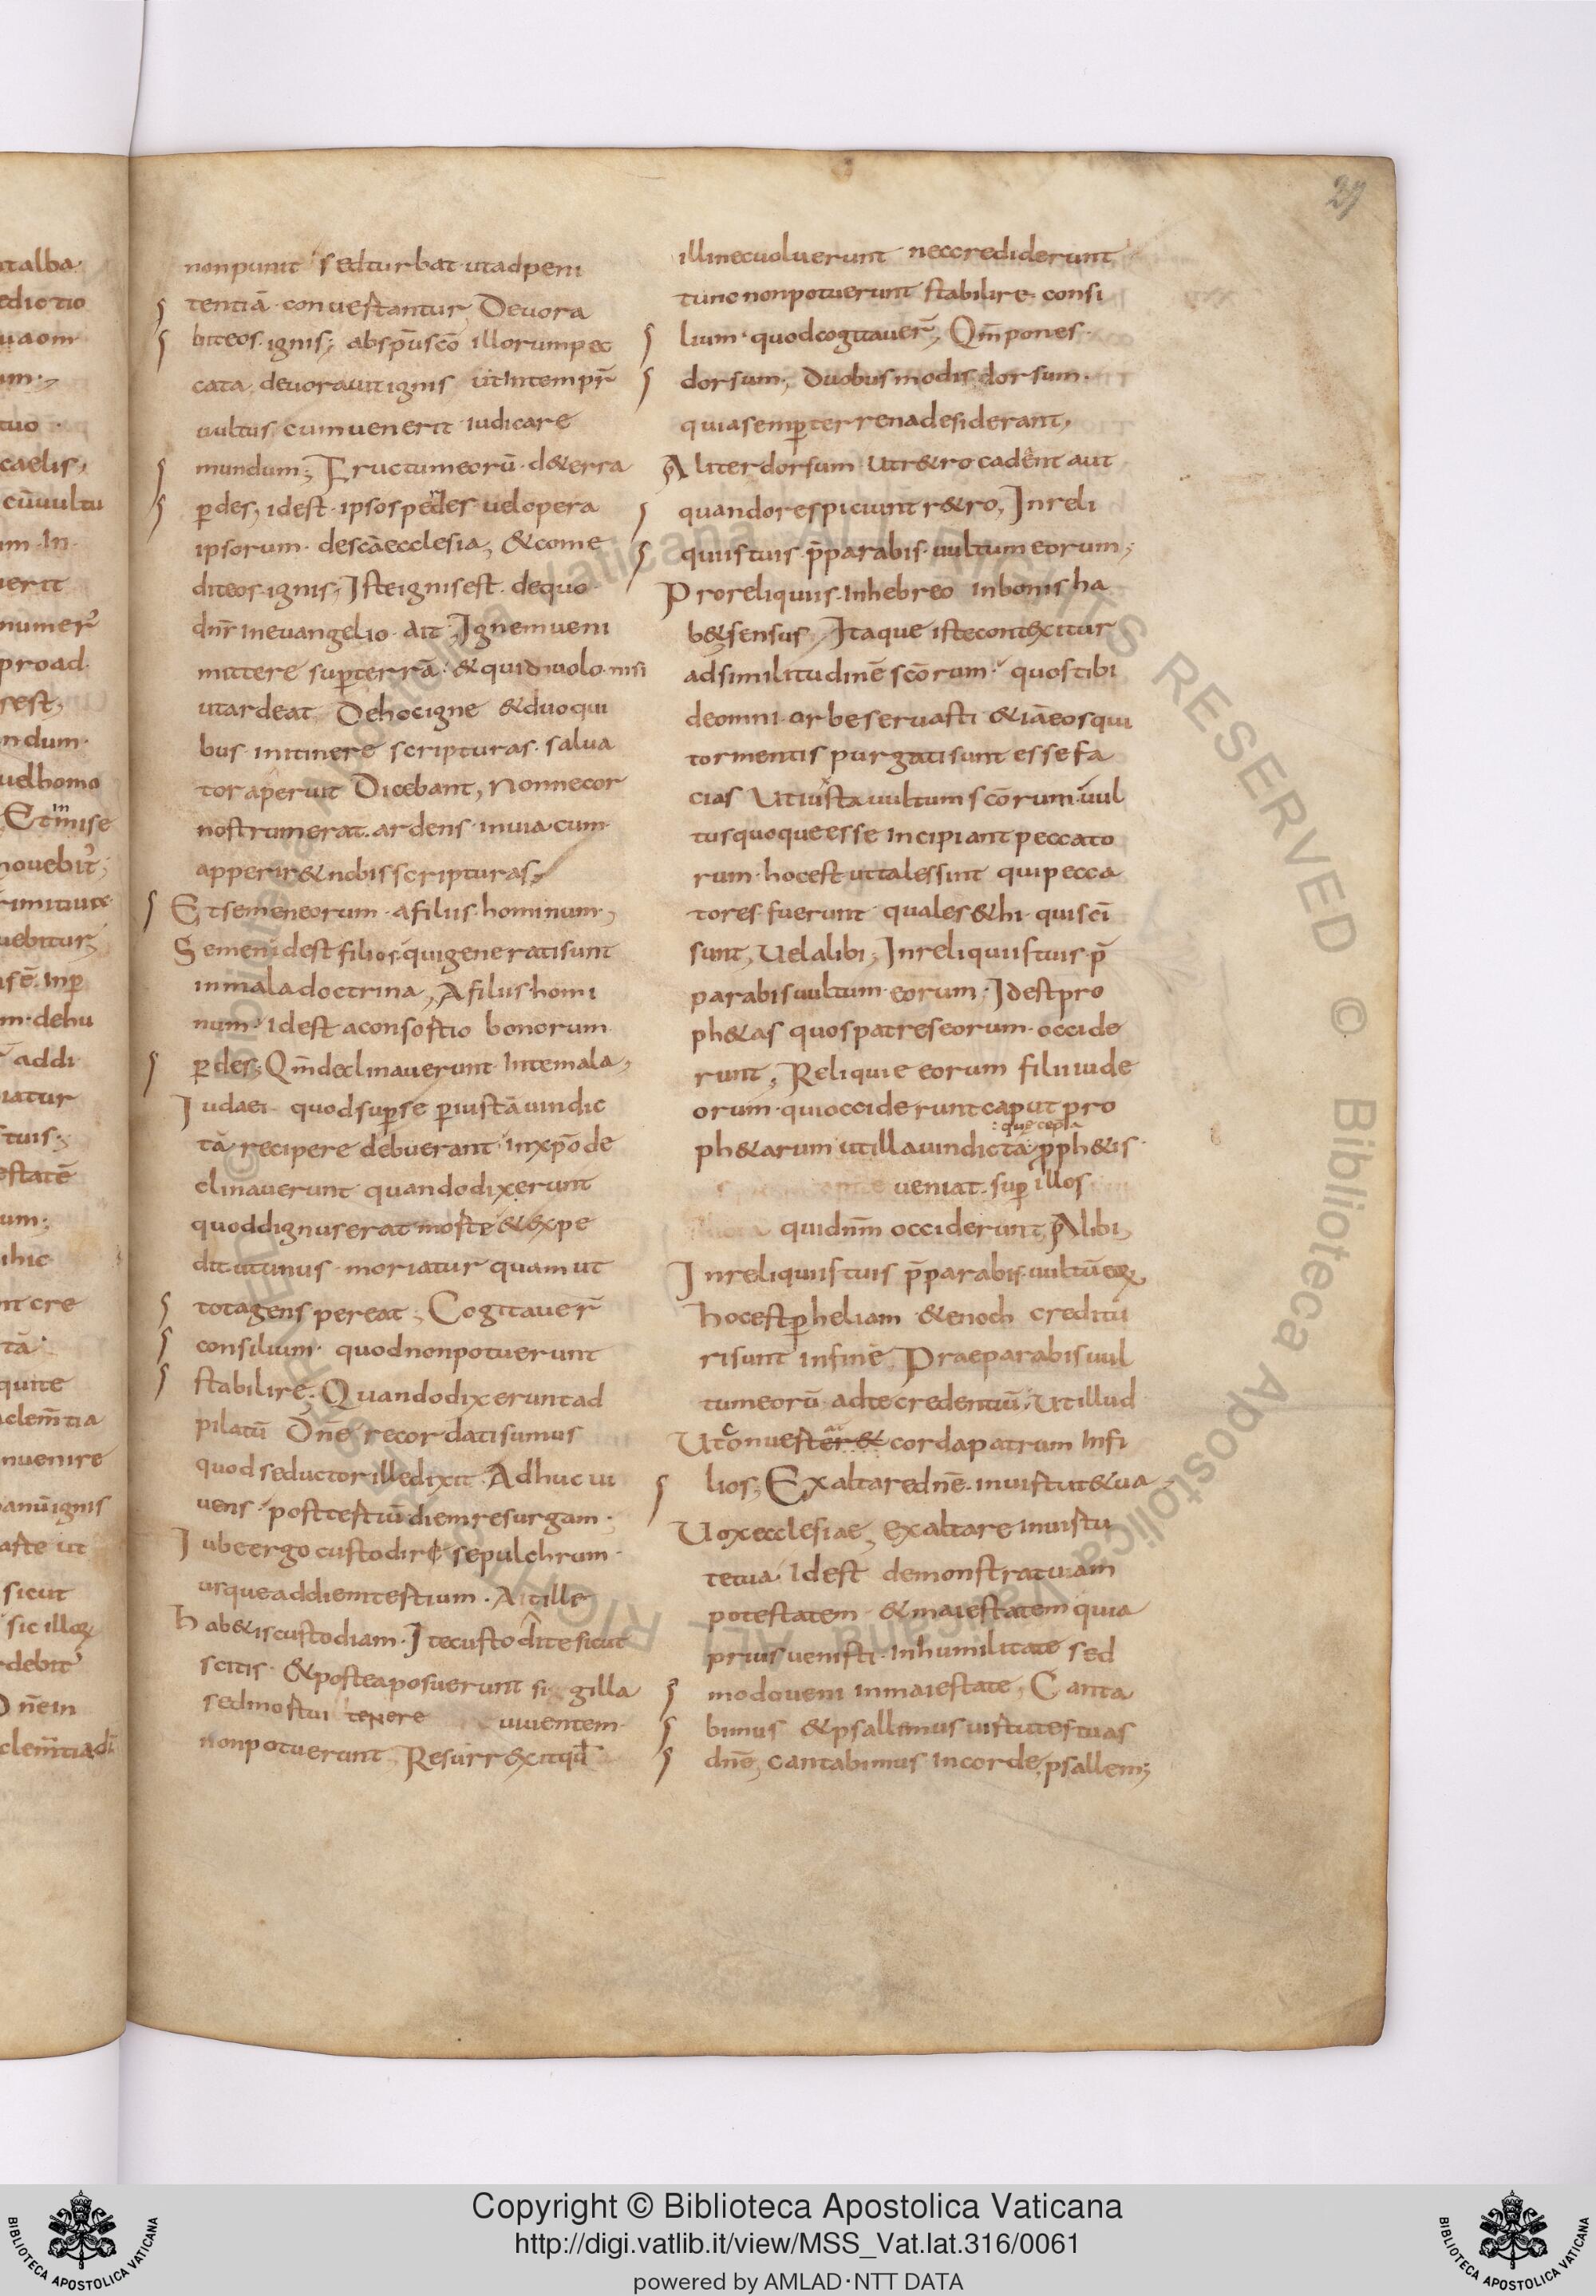 27
nonpunit sedturbat utadpeni
tentiā conuertantur Devora
biteos ignis; absp̄uscō illorumpec
cata deuorauit ignis utintempr̄
uultus cumuenerit iudicare
mundum; Fructumeorū d&erra
ꝑdes, idest ipsosperdes uelopera
ipsorum descāecclesia, &come
diteos ignis; Isteignisest dequo
dnr̄ ineuangelio ait Ignemueni
mittere suꝑterrā & quiduolo nisi
utardeat Dehocigne &duoqui
bus initinere scripturas salua
toraperuit Dicebant, Nonnecor
nostrumerat ardens inuia cum
apperir&nobisscripturas,
Etsemeneorum afiliis hominum,
Semen idest filios quigeneratisunt
inmaladoctrina, Afiliishomi
num idest aconsortio bonorum
ꝑdes; Qm̄declinauerunt Intemala,
Iudaei quodsuꝑse ꝑiustāuindic
tā recipere debuerant inxp̄ode
clinauerunt quandodixerunt
quoddignuserat morte &expe
dit utunus moriatur quamut
totagens pereat; Cogitauer̄
consilium quodnonpotuerunt
stabilire; Quandodixeruntad
pilatū Dn̄e recordatisumus
quodseductorilledixit Adhuc ui
uens posttertiūdiemresurgam
Iubeergo custodire sepulchrum
usqueaddiemtertium. Aitille
hab&iscustodiam. Itecustodite sicut
scitis &posteaposuerunt sigilla
sedmortui tenere uiuentem
nonpotuerunt Resurrexitqd
illinecuoluerunt neccrediderunt
tuncnonpotuerunt stabilire consi
lium quodcogitauer̄, Qm̄pones
dorsum, Duobusmodis dorsum
quiasemꝑterrenadesiderant,
Aliterdorsum utr&rocadent aut
quandorespiciunt r&ro, Inreli
quiistuis p̄parabis uultumeorum;
Proreliquiis Inhebreo inbonis ha
b&sensus Itaque istecontexitur
adsimilitudinē scōrum quostibi
deomni orbeseruasti &iāeosqui
tormentis purgatisunt essefa
cias Utiuxtauultumscōrum uul
tusquoqueesse incipiantpeccato
rum hocestuttalessint quipecca
tores fuerunt quales&hi quiscī
sunt, Uelalibi; Inreliquiistuis p̄
parabisuultum eorum, Idestpro
ph&as quospatreseorum occide
runt, Reliquie eorum filiiiude
orum quiocciderunt caput pro
: quę cepta
ph&arum utillauindicta ꝓph&is
ueniat suꝑ illos
quidnm̄ occiderunt Alibi,
Inreliquiistuis p̄parabis uultūeoꝝ,
hocestꝑheliam &enoch credita
risunt infine Praeparabisuul
tumeorū adtecredentiū Utillud
Utconuertat cordapatrum Infi
lios; Exaltaredn̄e inuirtut&ua
Uoxecclesiae, exaltare inuirtu
tetua Idest demonstratuam
potestatem &maiestatem quia
priusuenisti Inhumilitate sed
modoueni inmaiestate, Canta
bimus &psallemus uirtutestuas
dn̄e, cantabimus incorde psallem;
talba
edictio
uaom
um;
tuo
caelis,
cūuultu
um In
uerit
numer̉
proad
rest,
ndum
uelhomo
Etinise
nouebit̉;
uebitur,
m dehu
addi
iatur
tuis;
estatē
um;
ihic
nt cre
tā
quite
aclem̄tia
nuenire
panūignis
arte ut
sicut
sic illoꝝ
rdebit̉
Dn̄ein
clem̄tiadī
© Biblioteca Apostolica Vaticana ALL RIGHTS RESERVED © Biblioteca Apostolica Vaticana ALL RIGHTS RESERVED
Copyright © Biblioteca Apostolica Vaticana
http://digi.vatlib.it/view/MSS_Vat.lat.316/0061
powered by AMLAD·NTT DATA
BIBLIOTECA APOSTOLICA VATICANA
BIBLIOTECA APOSTOLICA VATICANA